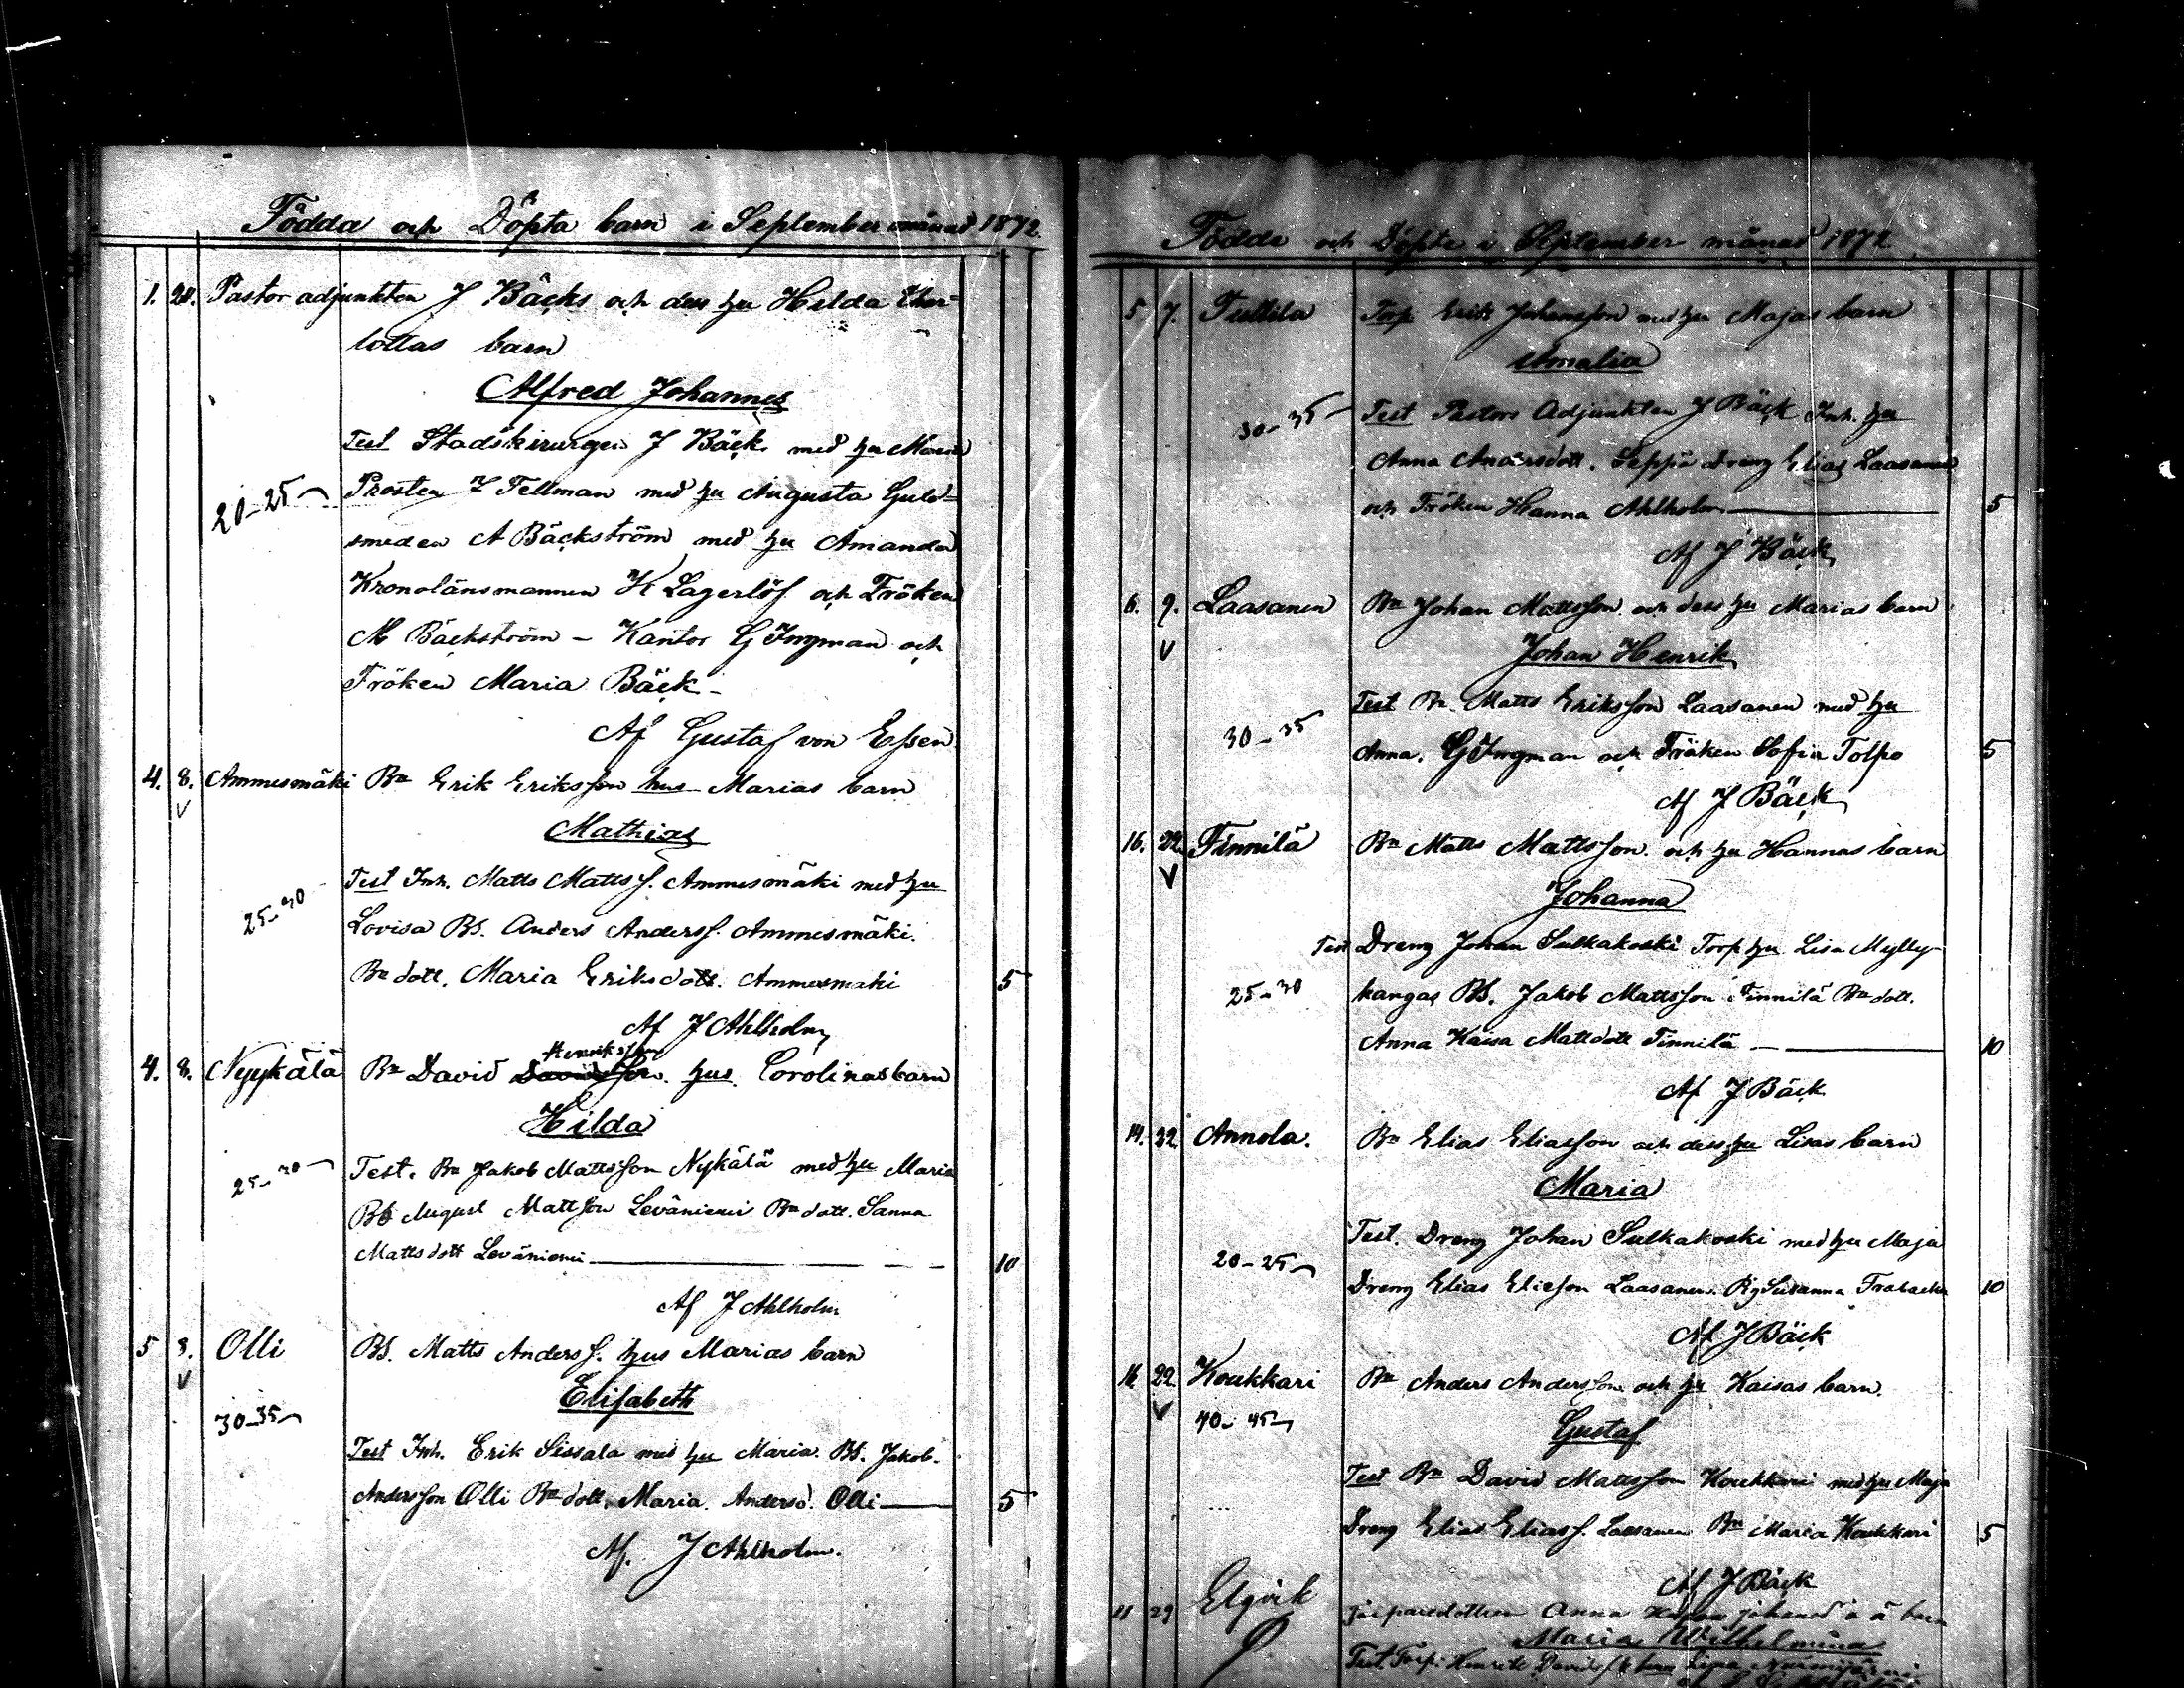 Födda och Döpta barn i September månad 1872.
1. 20. Pastor adjunkten J Bäcks och dess hu Hilda Char-
lottas barn
Alfred Johannes
Test Stadskirurgen J Bäck med hu Maria
20-25 Prosten J Tellman med hu Augusta Guld-
smeden A Bäckström med hu Amanda
Kronolänsmannen K Lagerlöf och Fröken
M Bäckström - Kantor G Ingman och
Fröken Maria Bäck -
Af Gustaf von Essen
4. 8. Ammesmäki Bn Erik Eriksson hus Marias barn
v
Mathias
Test Inh. Matts Mattss. Ammesmäki med hu
25-30 Lovisa BS. Anders Anderss. Ammesmäki.
Bn dott. Maria Eriksdott. Ammesmäki 5
Af J Ahlholm
Henriksson
4. 8. Nyykälä Bn David Davidsson. hus. Carolinas barn
Hilda
25-30 Test. Bn Jakob Mattsson Nykälä med hu Maria
BS August Mattsson Leväniemi Bn dott. Sanna
Matts dott Leväniemi 10
Af J Ahlholm
5 8. Olli BS. Matts Anderss. hus Marias barn
v
Elisabeth
30-35
Test Inh. Erik Sissala med hu Maria. BS. Jakob.
Andersson Olli Bn dott. Maria Andersd. Olli 5
Af. J Ahlholm.
Födde och Döpte i September månad 1872
5 7. Tullila Torp Erik Johansson med hu Majas barn
Amalia
30-35 Test Pastors Adjunkten J Bäck Inh. hu
Anna Andersdott. Seppä Dreng Elias Laasanen
och Fröken Hanna Ahlholm 5
Af J Bäck
6. 9. Laasanen Bn Johan Mattsson och dess hu Marias barn
v
Johan Henrik
Test Bn Matts Eriksson Laasanen med hu
30-35 Anna. G Ingman och Fröken Sofia Tolpo 5
Af J Bäck
16. 22. Finnilä Bn Matts Mattsson. och hu Hannas barn
v
Johanna
Test Dreng Johan Sulkakoski Torp hu Lisa Mylly-
25-30 kangas BS. Jakob Mattsson Finnilä Bn dott.
Anna Kaisa Mattsdott Finnilä 10
Af J Bäck
14. 22 Annola. Bn Elias Eliasson och dess hu Lisas barn
Maria
Test. Dreng Johan Sulkakoski med hu Maja
20-25 Dreng Elias Eliasson Laasanen. Pig Susanna 10
Af J Bäck
16 22 Koukkari Bn Anders Andersson och hu Kaisas barn.
v 40-45
Gustaf
Test Bn David Mattsson Koukkari med hu Maja
Dreng Elias Eliass. Laasanen Bn Maria Koukkari 5
Af J Bäck
29 Elgvik Anna
Maria Wilhelmina
Test Torp. Henrik